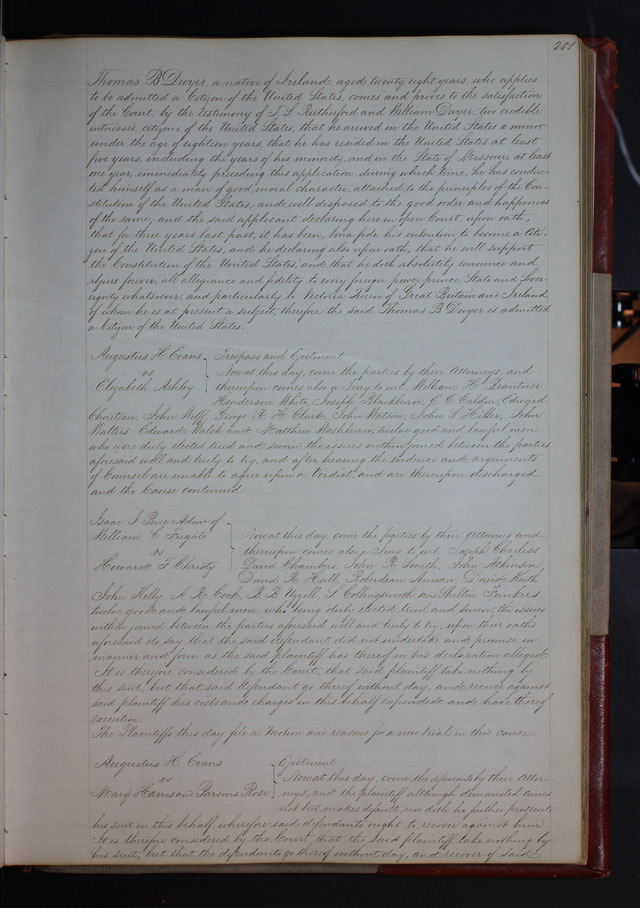 251
Thomas B Dwyer, a native of Ireland, aged twenty eight years, who applies
to be admitted a Citizen of the United States, comes and proves to the satisfaction
of the Court, by the testimony of Rutherford and William Dwyer, two credible
witnesses, citizens of the United States, that he arrived in the United States a minor
under the age of eighteen years, that he has resided in the United States at least
five years, including the years of his minority, and in the State of Missouri at least
one year, immediately preceding this application, during which time, he has conduc-
ted himself as a man of good moral character, attached to the principles of the Con-
stitution of the United States, and well disposed to the good order and happiness
of the same, and the said applicant declaring here in open Court, upon oath,
that for three years last past, it has been, bona fide his intention to become a Citi-
zen of the United States, and he declaring also upon oath, that he will support
the Constitution of the United States, and that he doth absolutely renounce and
abjure forever, all allegiance and fidelity to every foreign power, prince State and Sover-
eignty whatsoever, and particularly to Victoria Queen of Great Britain and Ireland
of whom he is at present a subject, therefore the said Thomas B Dwyer is admitted
a Citizen of the United States.
Augustus H Evans Trespass and Ejectment
vs Now at this day, come the parties by their Attorneys, and
Elizabeth Ashby thereupon comes also a Jury to wit, William H
Henderson White, Joseph Blackburn, C C Caldon, Edward
Christian, John Wolff, George R H Clark, John Watson, John S Hiller, John
Walters, Edward Walsh and Matthew Washburn, twelve good and lawful men
who were duly elected tried and sworn the issues within joined between the parties
aforesaid well and truly to try, and after hearing the evidence and arguments
of Counsel are unable to agree upon a Verdict, and are thereupon discharged
and the Cause continued
Isaac J Price Admr of
William C Fugate Now at this day, come the parties by their Attorneys and
vs thereupon comes also a Jury to wit Joseph Charless
Howard F Christy David Chambers, John R Smith, John Atkinson,
David R Hull, Roberdean Annan, David Keith
John Kelly, A R Cook, B B Uzzell, S Collingsworth and
twelve good and lawful men, who being duly elected, tried and sworn the issues
within joined between the parties aforesaid, well and truly to try, upon their oaths
aforesaid do say that the said defendant did not undertake and promise in
manner and form as the said plaintiff has thereof in his declaration alleged.
It is therefore considered by the Court, that said plaintiff take nothing by
this suit, but that said defendant go thereof without day, and recover against
said plaintiff his costs and charges in this behalf expended and have thereof
execution.
The Plaintiffs this day file a Motion and reasons for a new trial in this cause.
Augustus H Evans Ejectment
vs Now at this day, come the defendants by their Attor-
Mary Harris and Parsons Rose neys, and the plaintiff although demanded comes
not but makes default, nor doth he further prosecute
his suit in this behalf, wherefore said defendants ought to recover against him
It is therefore considered by the Court that the said plaintiff take nothing by
his suit, but that the defendants go thereof without day, and recover of said